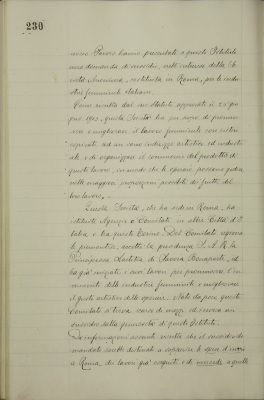 230
hanno presentato a questo Istituto
una domanda di sussidio, nell'interesse della So
cietà Anonima, costituita in Roma, per le indu
strie femminili italiane.
Come risulta dal suo Statuto approvato il 25 giu
gno 1903, questa Società ha per scopo di promuo
vere e migliorare il lavoro femminile con criteri
ispirati ad un sano indirizzo artistico ed industri
ale e di organizzare il commercio dei prodotti di
questo lavoro, in modo che le operaie possano godere
nella maggiore proporzione possibile dei frutti del
loro lavoro.
Questa Società, che ha sede in Roma, ha
istituito Agenzie o Comitati in altre Città d'I
talia, e tra queste Torino. Del Comitato
le piemontesi, sotto la presidenza S. A. R. la
Principessa Laetitia di Savoia Bonaparte, ed
ha già iniziato i suoi lavori per promuovere l'in
cremento delle industrie femminili e migliorare
il gusto artistico delle operaie. Nato da poco, questo
Comitato si trova scarso di mezzi ed invoca un
sussidio dalla generosità di questo Istituto.
Da informazioni assunte risulta che il sussidio do
mandato sarebbe destinato a
a Roma, dei lavori già eseguiti e di a quelle